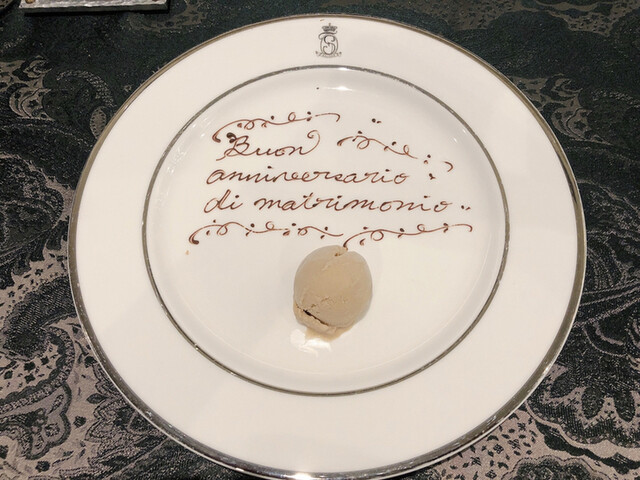 Buon
anniversario
di matrimonio